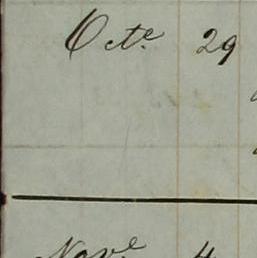 Octe 29
Nove 4